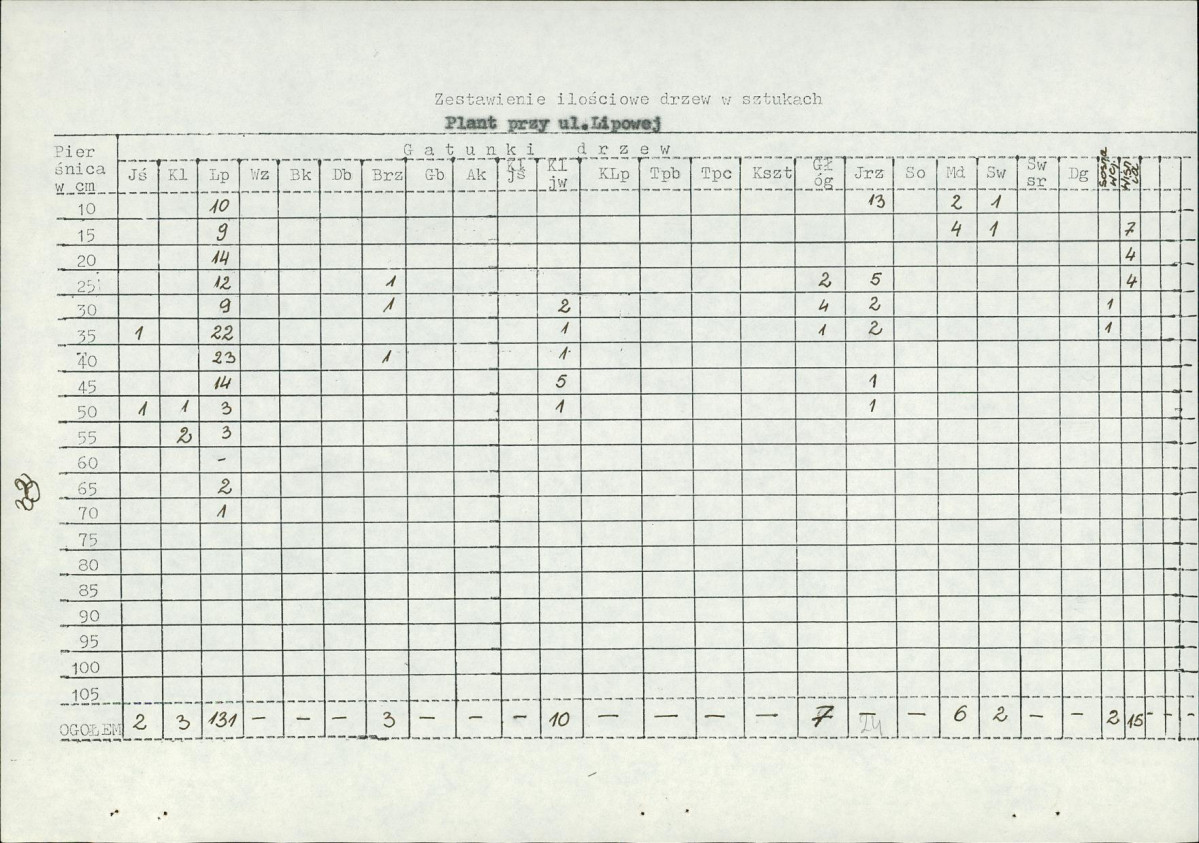 Zestawienie ilościowe drzew w sztukach
Plant przy ul.Lipowej
Pier śnica w cm G a t u n k i d r z e w
Jś Kl Lp Wz Bk Db Brz Gb Ak Kl jś Kl jw KLp Tpb Tpc Kszt Gł óg Jrz So Md Sw Sw sr Dg sosna wej.
10 10 13 2 1
15 9 4 1 7
20 14 4
25 12 1 2 5 4
30 9 1 2 4 2 1
35 1 22 1 1 2 1
40 23 1 1
45 14 5 1
50 1 1 3 1 1
55 2 3
60 -
65 2
70 1
75
80
85
90
95
100
105
OGOŁEM 2 3 131 - - - 3 - - - 10 - - - - 7 - 24 - 6 2 - - 2 15 - - -